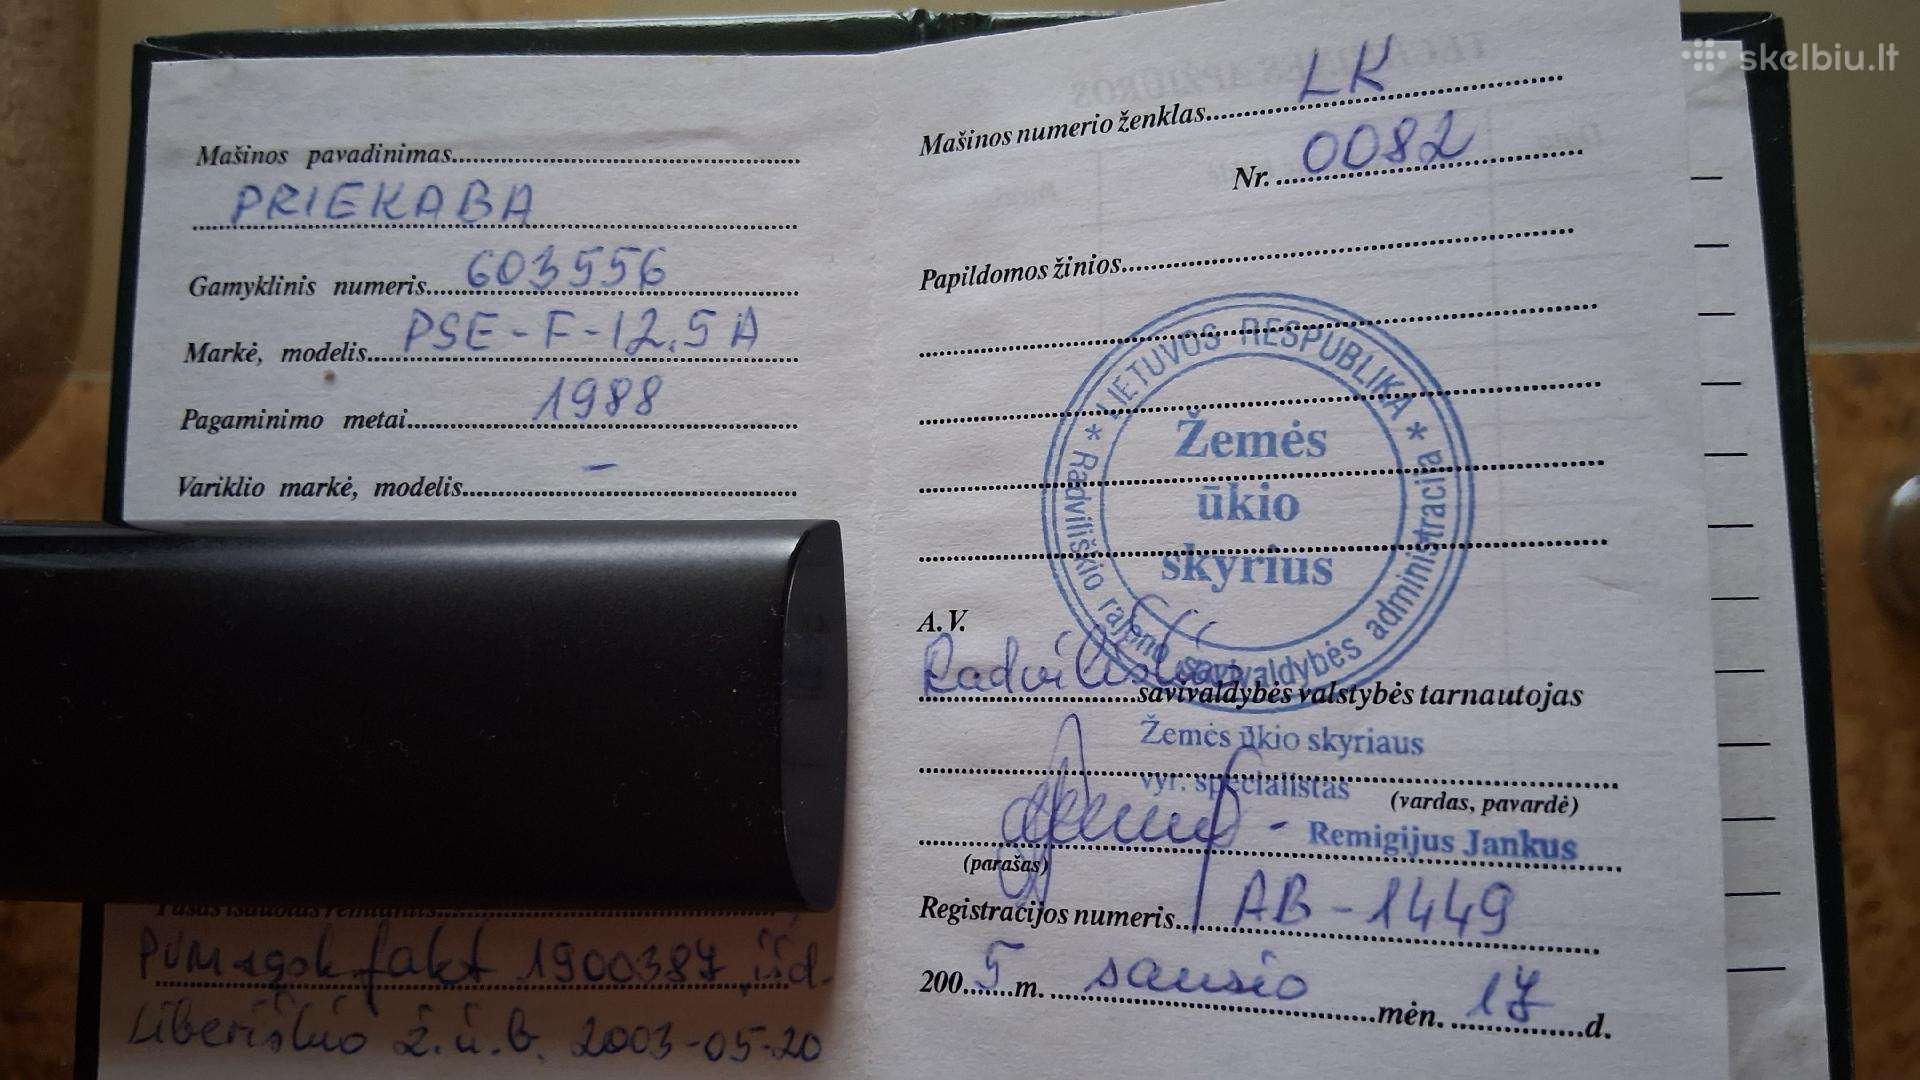 skelbiu.lt
Mašinos pavadinimas
PRIEKABA
Gamyklinis numeris 603556
Markė, modelis PSE-F-12,5A
Pagaminimo metai 1988
Variklio markė, modelis –
PVM sąsk fakt 1900387, išd.
Liberiškio ž.ū.b. 2003-05-20
Mašinos numerio ženklas LK
Nr. 0082
Papildomos žinios
* LIETUVOS RESPUBLIKA *
Radviliškio rajono savivaldybės administracija
Žemės
ūkio
skyrius
A. V.
Radviliškio savivaldybės valstybės tarnautojas
Žemės ūkio skyriaus
vyr. specialistas
(vardas, pavardė)
- Remigijus Jankus
(parašas)
Registracijos numeris AB-1449
200 5 m. sausio mėn. 17 d.